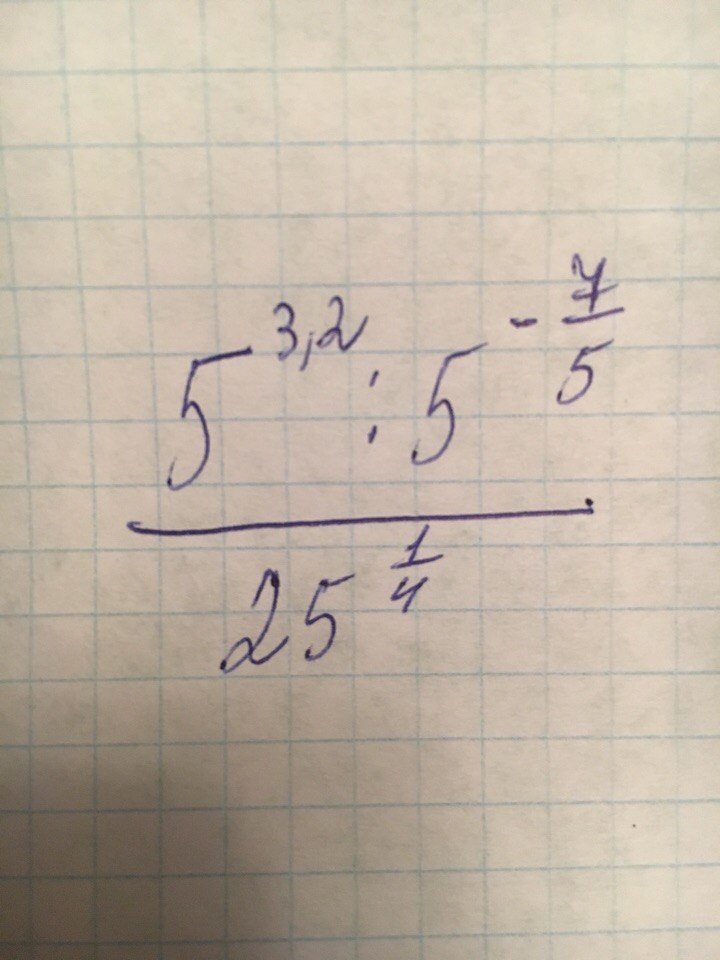 5^{3,2} : 5^{-\frac{7}{5}}
25^{\frac{1}{4}}